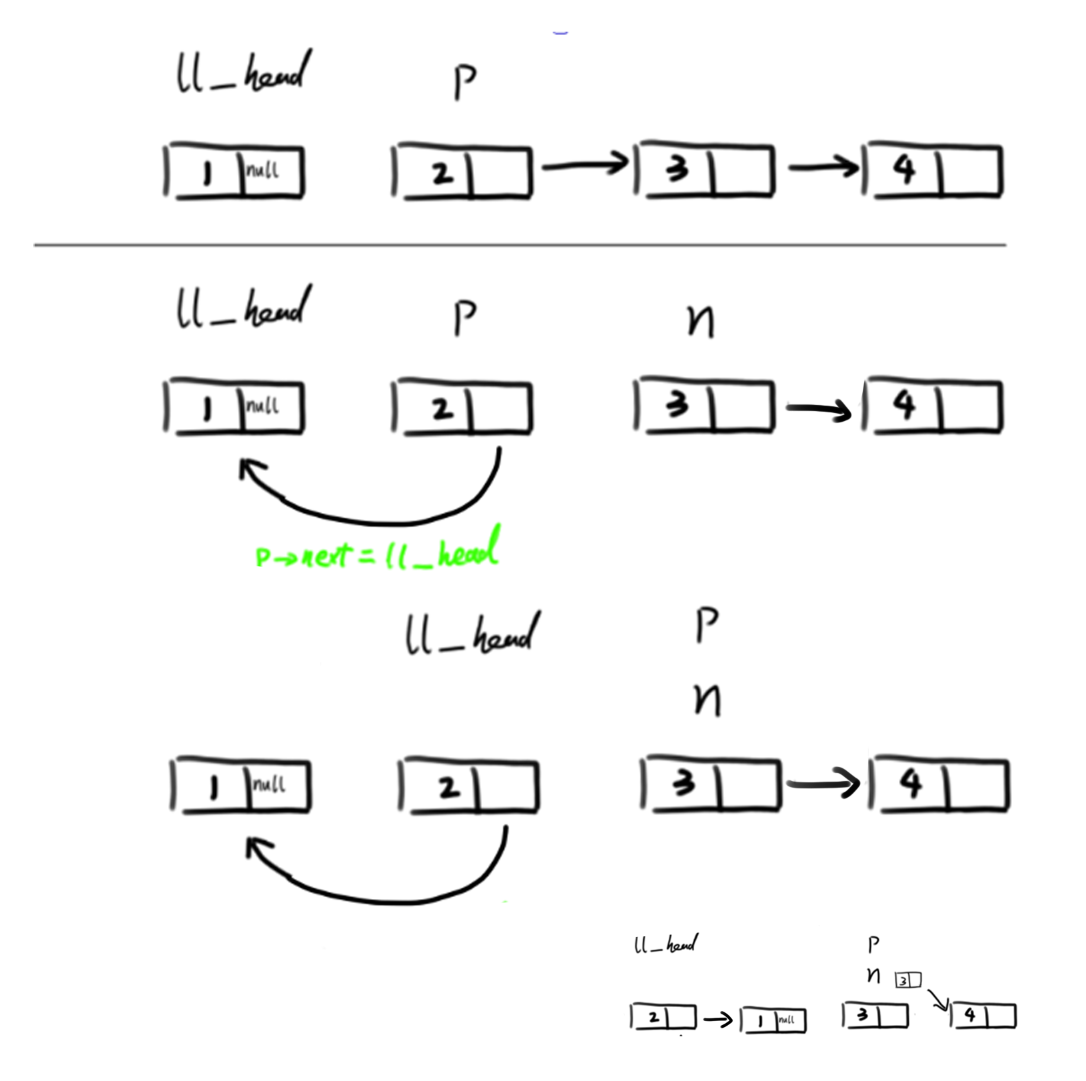 ll_head p
1 null 2 3 4
ll_head p n
1 null 2 3 4
p→next = ll_head
ll_head p
n
1 null 2 3 4
ll_head p
n 3
2 1 null 3 4